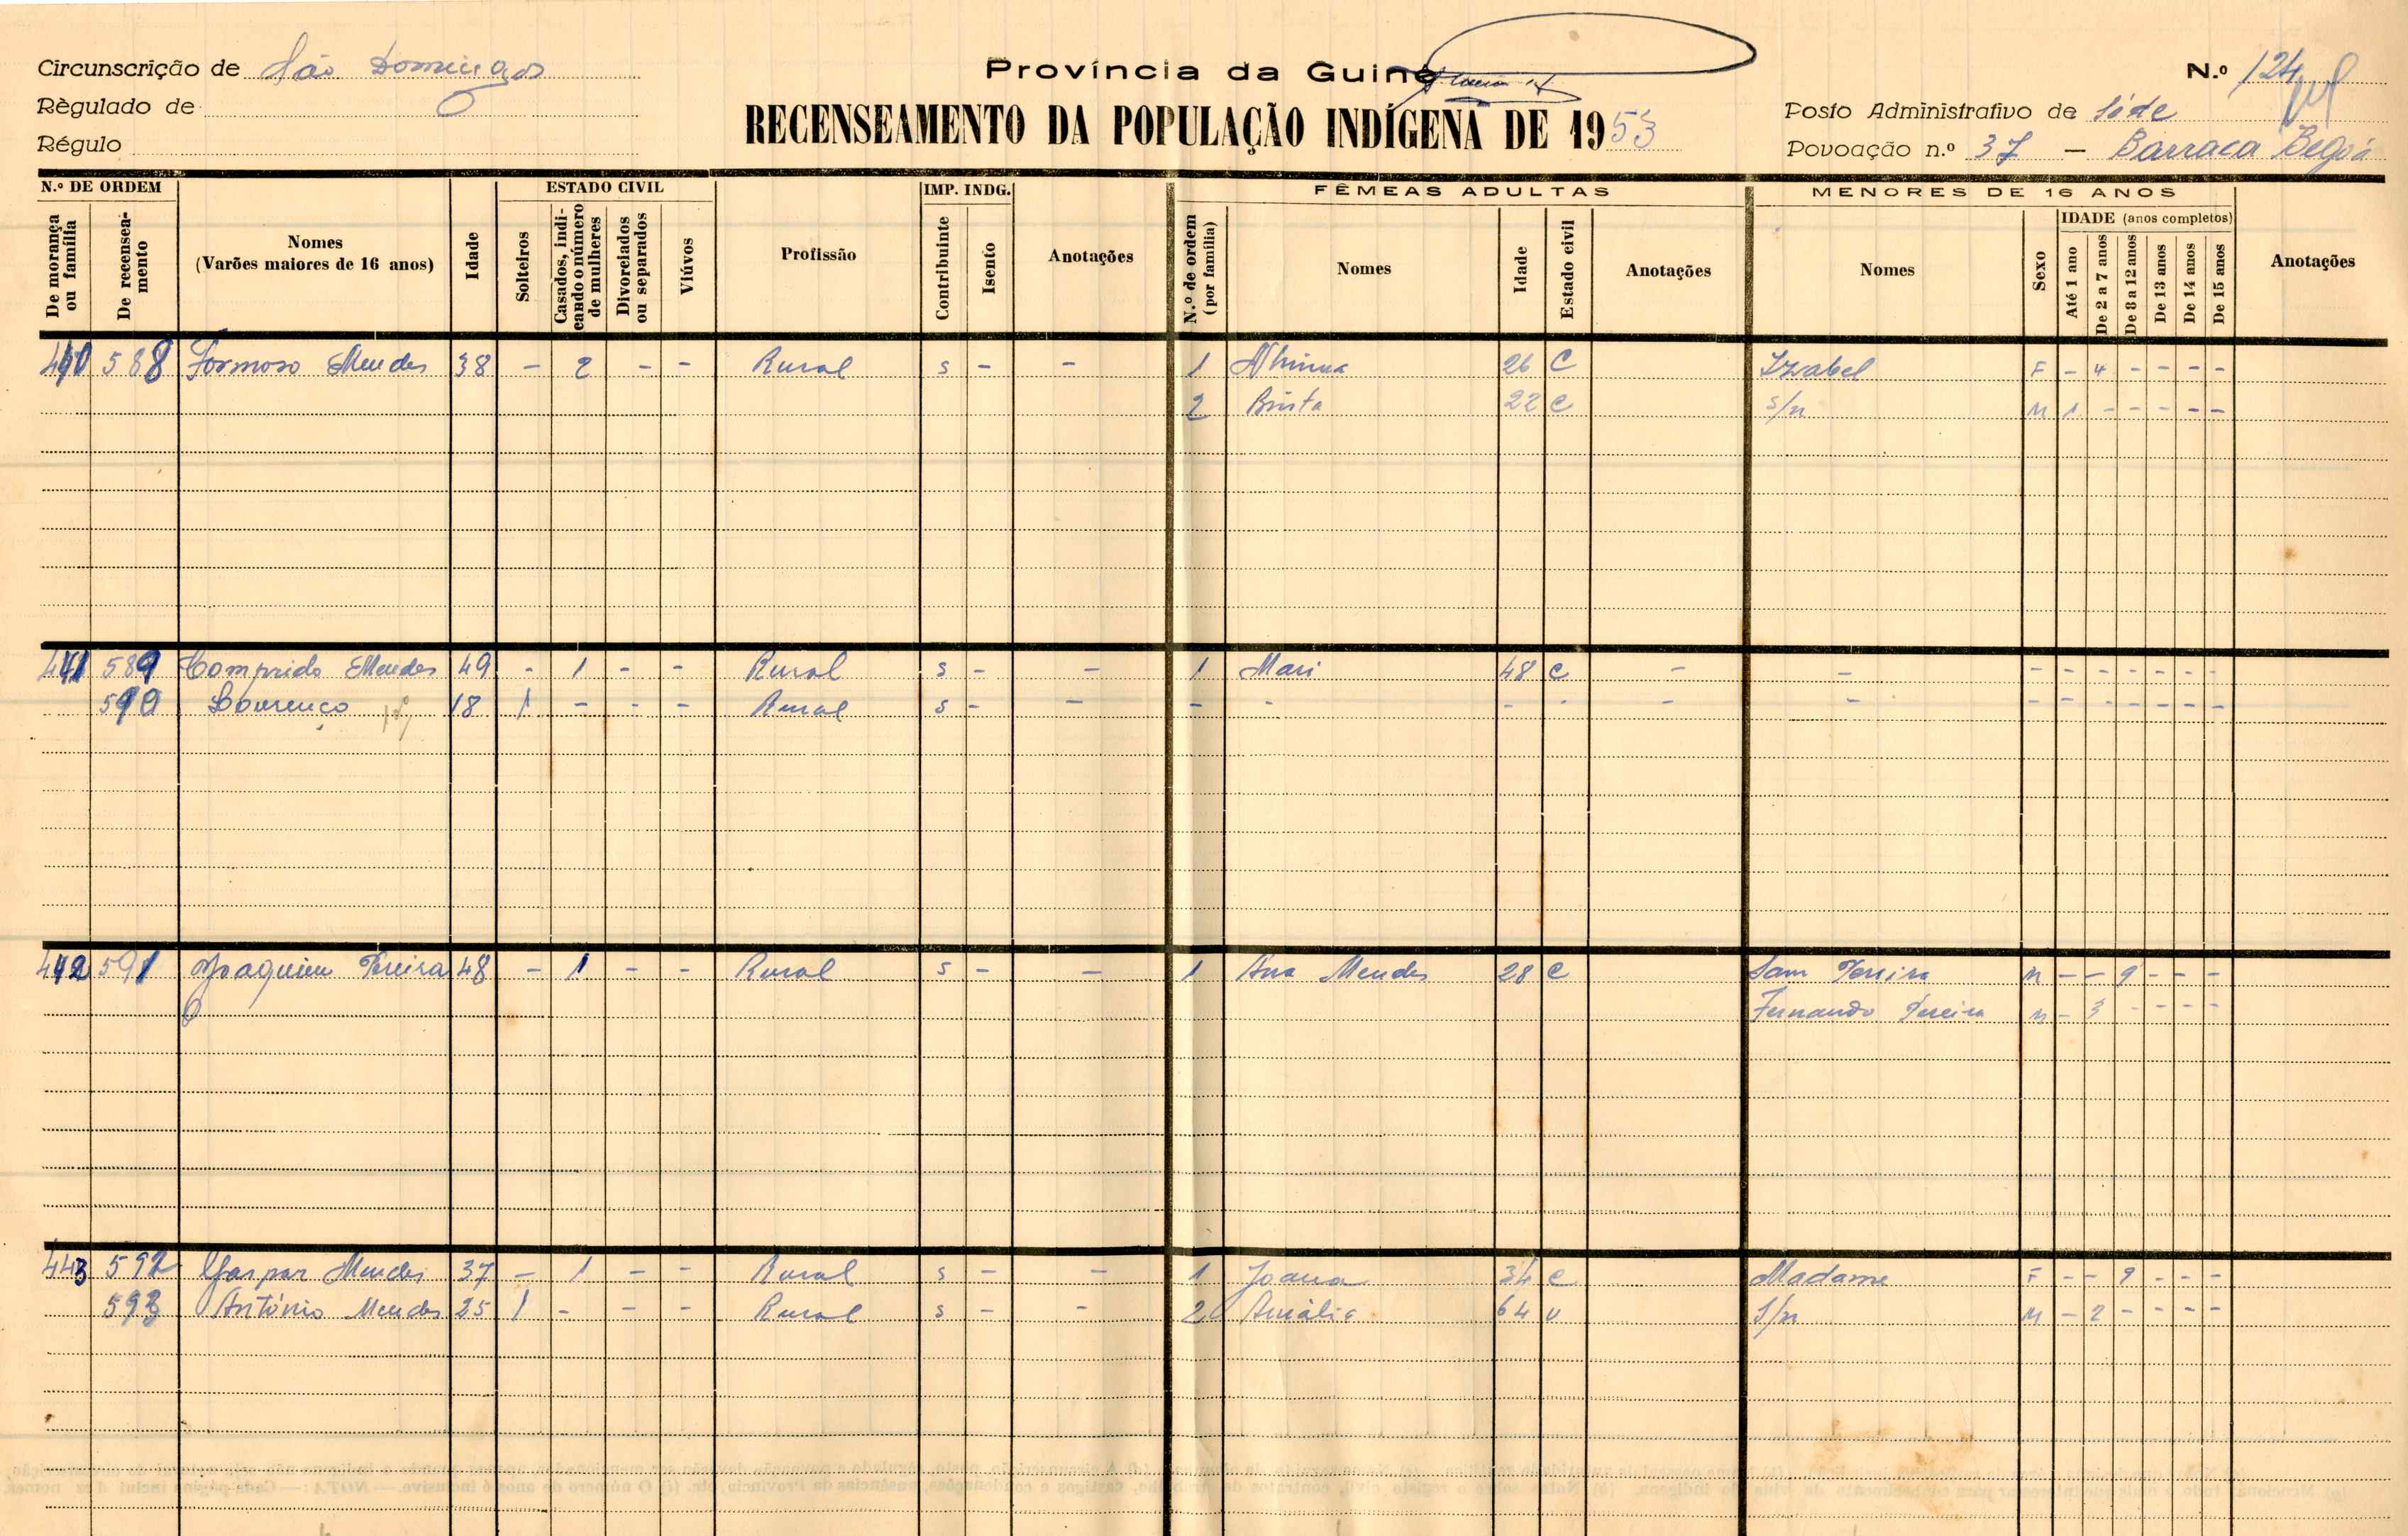 Circunscrição de São Domingos
Règulado de
Régulo
Província da Guiné
RECENSEAMENTO DA POPULAÇÃO INDÍGENA DE 1953
N.º 124
Posto Administrativo de Séde
Povoação n.º 37 — Barraca Begoá
N.º DE ORDEM
De morança ou família
De recenseamento
Nomes
(Varões maiores de 16 anos)
Idade
ESTADO CIVIL
Solteiros
Casados, indicando o número de mulheres
Divorciados ou separados
Viúvos
Profissão
IMP. INDG.
Contribuinte
Isento
Anotações
FÊMEAS ADULTAS
N.º de ordem (por família)
Nomes
Idade
Estado civil
Anotações
MENORES DE 16 ANOS
Nomes
Sexo
IDADE (anos completos)
Até 1 ano
De 2 a 7 anos
De 8 a 12 anos
De 13 anos
De 14 anos
De 15 anos
Anotações
440 588 Formoso Mendes 38 - 2 - - Rural s - - 1 Nhima 26 C Izabel F - 4 - - - -
2 Brista 22 C s/n M 1 - - - - -
441 589 Comprido Mendes 49 - 1 - - Rural s - - 1 Mari 48 C - - - - - - - - -
590 Lourenço 18 1 - - - Rural s - - - - - - - - - - - - - - -
442 591 Joaquim Pereira 48 - 1 - - Rural s - - 1 Ana Mendes 28 C Sam Pereira M - - 9 - - -
Fernando Pereira M - 3 - - - -
443 592 Gaspar Mendes 37 - 1 - - Rural s - - 1 Joana 34 C Madame F - - 9 - - -
593 António Mendes 25 1 - - - Rural s - - 2 Amália 64 v S/n M - 2 - - - -